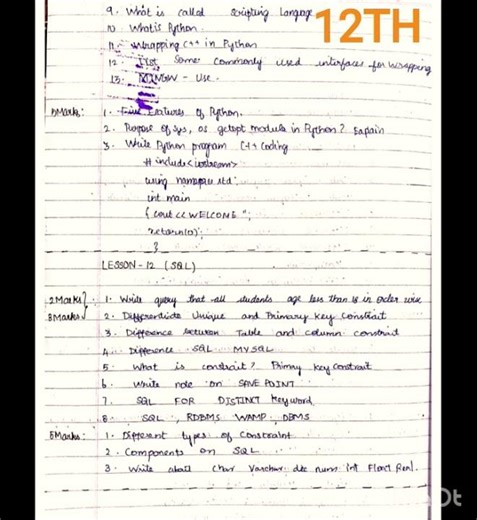 9. What is called Scripting Langage
12TH
10. What is Python.
11. Wrapping C++ in Python
12. List Some Commonly used interfaces for wrapping
13. MINGW - Use.
5Marks: 1. Features of Python.
2. Purpose of sys, os getopt module in Python? Explain
3. Write Python program C++ Coding
# include <iostream>
using namespace std;
int main
{ cout << "WELCOME";
return(0);
}
LESSON - 12 (SQL)
2Marks 1. Write query that all students age less than 18 in order wise
3Marks 2. Differentiate Unique and Primary key constraint
3. Difference between Table and column constraid
4. Difference SQL MYSQL
5. What is constrait? Primary key constrait
6. Write note on SAVE POINT
7. SQL FOR DISTINCT Keyword
8. SQL, RDBMS WAMP, DBMS
5Marks: 1. Different types of Constraint
2. Components on SQL
3. Write about char Varchar dec num int Float Real.